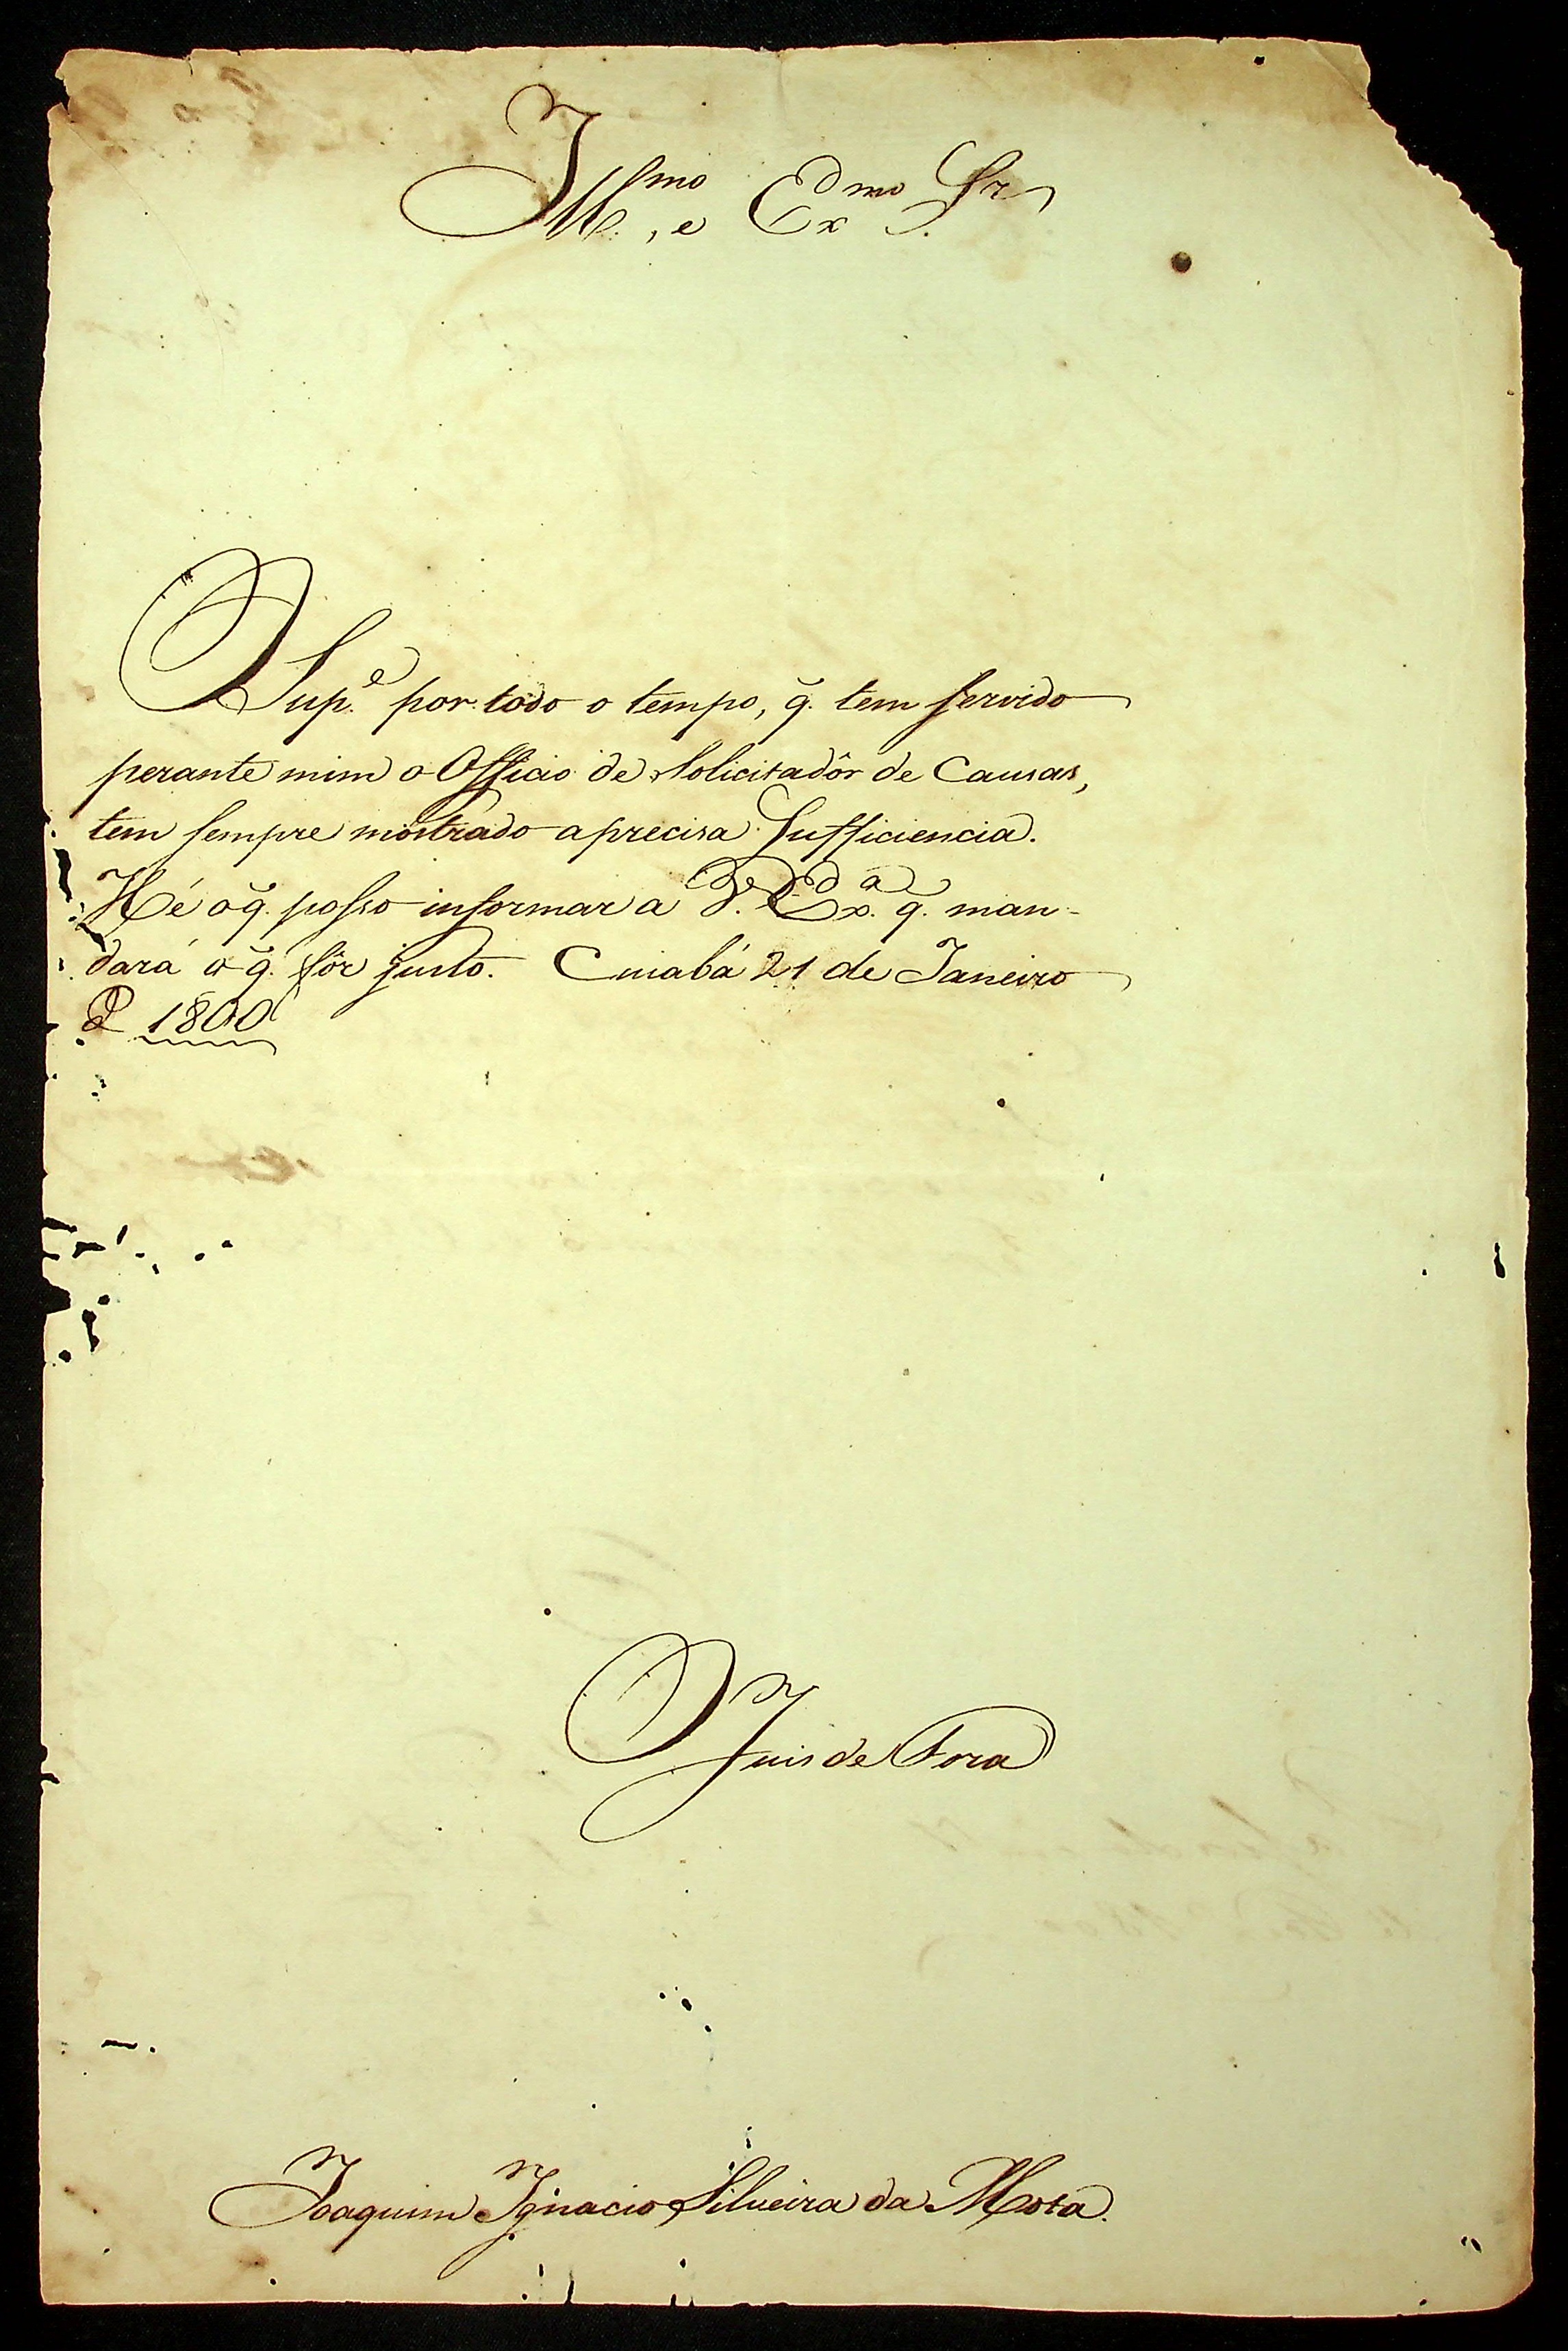 Ill.mo, e Ex.mo Sr.
O Sup.e por todo o tempo, q̃. tem servido
perante mim o Officio de Solicitadôr de Causas,
tem sempre mostrado a precisa Sufficiencia.
Hé o q̃. posso informar a V. Ex.a q̃. man-
dará o q̃. fôr justo. Cuiabá 21 de Janeiro
de 1800
O Juis de Fora
Joaquim Ignacio Silveira da Mota.